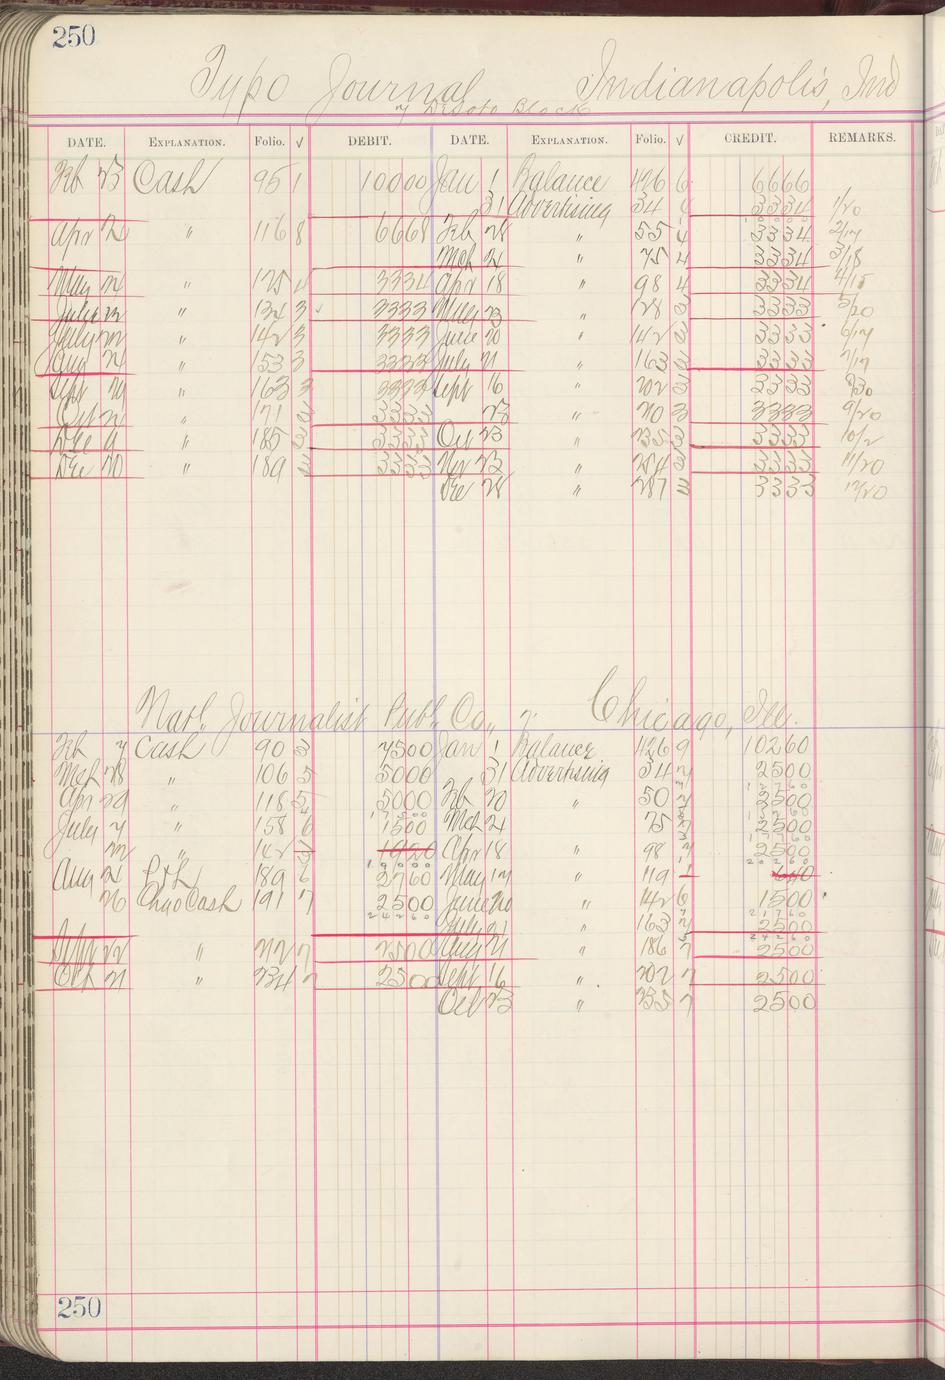 250
Typo Journal Indianapolis, Ind
7 DeSoto Block
DATE. EXPLANATION. Folio. √ DEBIT. DATE. EXPLANATION. Folio. √ CREDIT. REMARKS.
Feb 23 Cash 95 1 10000 Jan 1 Balance 426 6 6666
31 Advertising 34 4 3334 1/20
Apr 2 " 116 8 6668 Feb 28 " 55 4 3334 2/17
Mch 2 " 75 4 3334 3/18
May 2 " 125 4 3334 Apr 18 " 98 4 3334 4/15
" 134 3 3333 May 23 " 128 3 3333 5/20
July 22 " 142 3 3333 June 20 " 142 3 3333 6/17
Aug 24 " 153 3 3333 July 21 " 163 3 3333 7/17
Sept " 163 3 3333 Sept 16 " 202 3 3333
Oct 21 " 171 3 3333 23 " 210 3 3333 9/20
Dec 9 " 185 3 3333 Oct 23 " 235 3 3333 10/2
Dec 20 " 189 3 3333 Nov 23 " 254 3 3333 11/20
Dec 28 " 287 3 3333 12/20
Natl. Journalist Publ. Co., Chicago, Ill.
Feb 7 Cash 90 5 7500 Jan 1 Balance 426 9 10260
Mch 28 " 106 5 5000 31 Advertising 34 7 2500
Apr 29 " 118 5 5000 Feb 20 " 50 7 2500
July 7 " 158 6 1500 Mch 24 " 75 7 2500
" 162 1920 Apr 18 " 98 7 2500
Aug 189 6 2760 May 17 " 119 1 640
26 Cash 191 7 2500 June 20 " 142 6 1500
24260 July 21 " 163 7 2500
22 " 212 7 2500 Aug 21 " 186 7 2500
Oct 21 " 234 7 2500 Sept 16 " 202 7 2500
Oct 23 " 235 7 2500
250